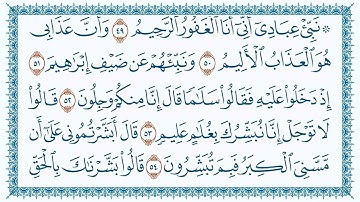 ۞ نَبِّئْ عِبَادِىٓ أَنِّىٓ أَنَا ٱلْغَفُورُ ٱلرَّحِيمُ ٤٩ وَأَنَّ عَذَابِى
هُوَ ٱلْعَذَابُ ٱلْأَلِيمُ ٥٠ وَنَبِّئْهُمْ عَن ضَيْفِ إِبْرَٰهِيمَ ٥١
إِذْ دَخَلُوا۟ عَلَيْهِ فَقَالُوا۟ سَلَٰمًا قَالَ إِنَّا مِنكُمْ وَجِلُونَ ٥٢ قَالُوا۟
لَا تَوْجَلْ إِنَّا نُبَشِّرُكَ بِغُلَٰمٍ عَلِيمٍ ٥٣ قَالَ أَبَشَّرْتُمُونِى عَلَىٰٓ أَن
مَّسَّنِىَ ٱلْكِبَرُ فَبِمَ تُبَشِّرُونَ ٥٤ قَالُوا۟ بَشَّرْنَٰكَ بِٱلْحَقِّ